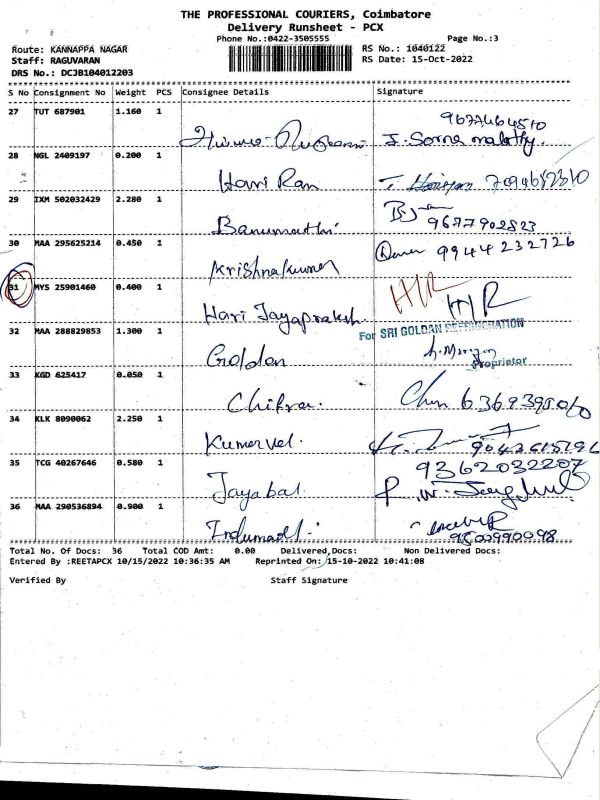 THE PROFESSIONAL COURIERS, Coimbatore
Delivery Runsheet - PCX
Phone No.:0422-3505555 Page No.:3
Route: KANNAPPA NAGAR RS No.: 1040122
Staff: RAGUVARAN RS Date: 15-Oct-2022
DRS No.: DCJB104012203
S No Consignment No Weight PCS Consignee Details Signature
27 TUT 687901 1.160 1
9677464510
J. Sorna malathy.
28 NGL 2409197 0.200 1
Hari Ram
29 IXM 502032429 2.280 1
Banumathi 9677902823
30 MAA 295625214 0.450 1 9944232726
Krishnakumar
31 MYS 25901460 0.400 1 H/R H/R
Hari Jayaprakash
32 MAA 288829853 1.300 1 For SRI GOLDAN REFRIGERATION
Goldan Proprietor
33 KGD 625417 0.050 1
Chitra.
34 KLK 8090062 2.250 1
Kumarvel.
35 TCG 40267646 0.580 1 9362032207
Jayabal
36 MAA 290536894 0.900 1
Indumathi. 9500990098
Total No. Of Docs: 36 Total COD Amt: 0.00 Delivered Docs: Non Delivered Docs:
Entered By :REETAPCX 10/15/2022 10:36:35 AM Reprinted On: 15-10-2022 10:41:08
Verified By Staff Signature